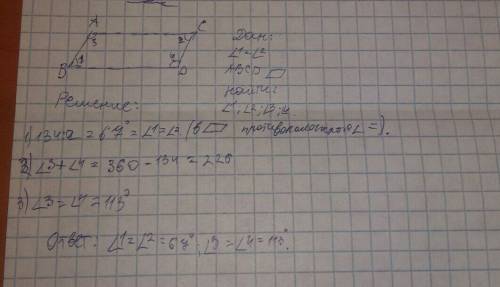 A C
3 2
B 1 4 D
Дано:
∠1=∠2
ABCD ▱
Найти:
∠1; ∠2; ∠3; ∠4.
Решение:
1) 134:2 = 67° = ∠1=∠2 (в ▱ противоположные ∠ =).
2) ∠3+∠4 = 360 - 134 = 226
3) ∠3 = ∠4 = 113°
Ответ: ∠1=∠2=67°; ∠3=∠4=113°.